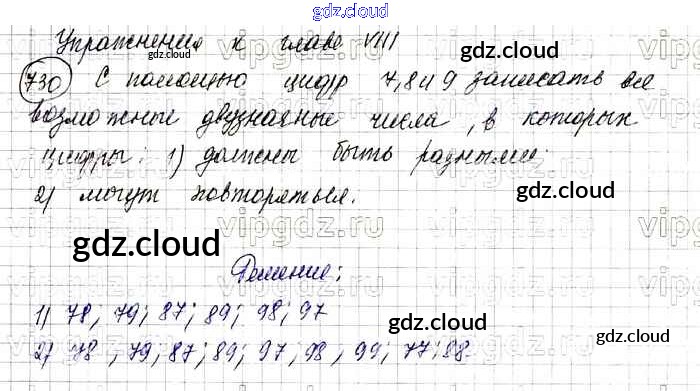 gdz.cloud
Упражнения к главе VIII
730 С помощью цифр 7,8 и 9 записать все
возможные двузначные числа, в которых
цифры: 1) должны быть разными;
2) могут повторяться.
Решение:
1) 78; 79; 87; 89; 98; 97
2) 78, 79; 87; 89; 97, 98, 99; 77; 88
gdz.cloud
gdz.cloud
gdz.cloud
gdz.cloud
gdz.cloud
gdz.cloud
vipgdz.ru